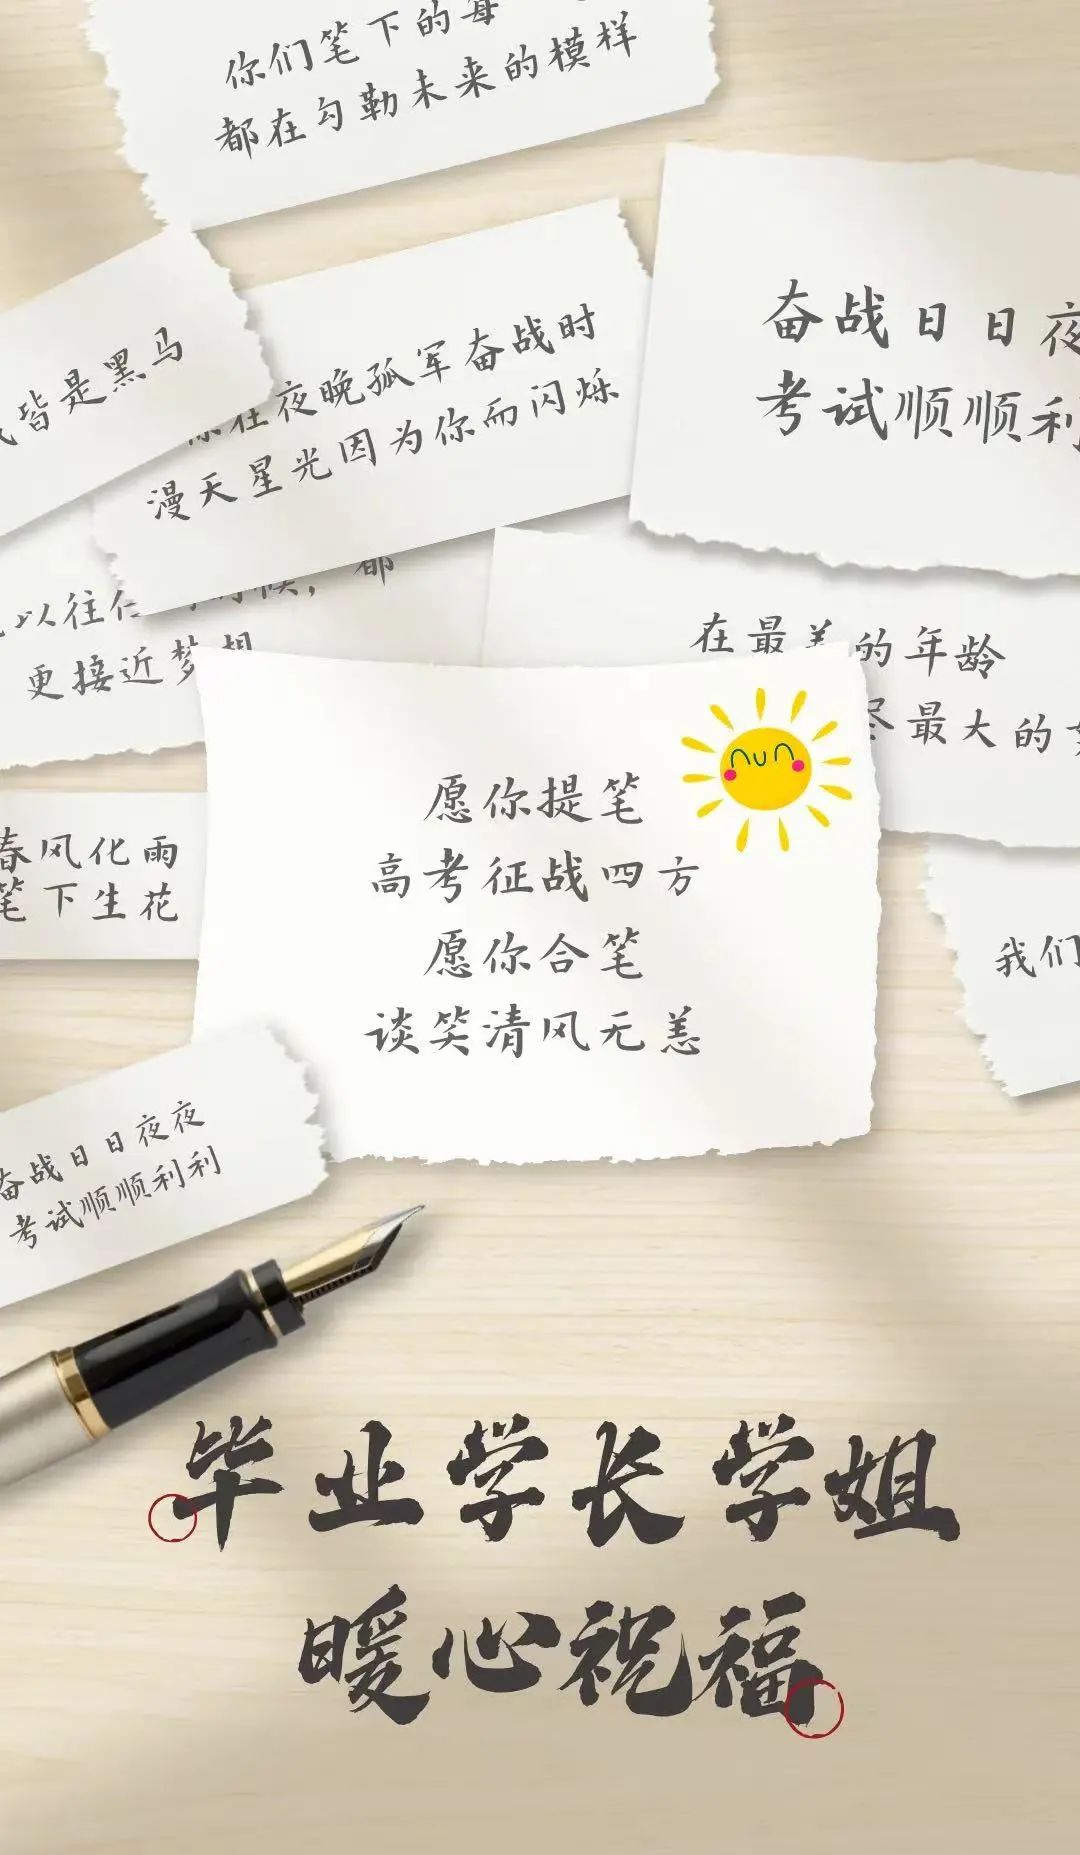 你们笔下的每一
都在勾勒未来的模样
奋战日日夜
考试顺顺利
皆是黑马
你在夜晚孤军奋战时
漫天星光因为你而闪烁
以往任
都
更接近梦想
在最美的年龄
尽最大的
愿你提笔
高考征战四方
愿你合笔
谈笑清风无恙
春风化雨
笔下生花
我们
奋战日日夜夜
考试顺顺利利
毕业学长学姐
暖心祝福